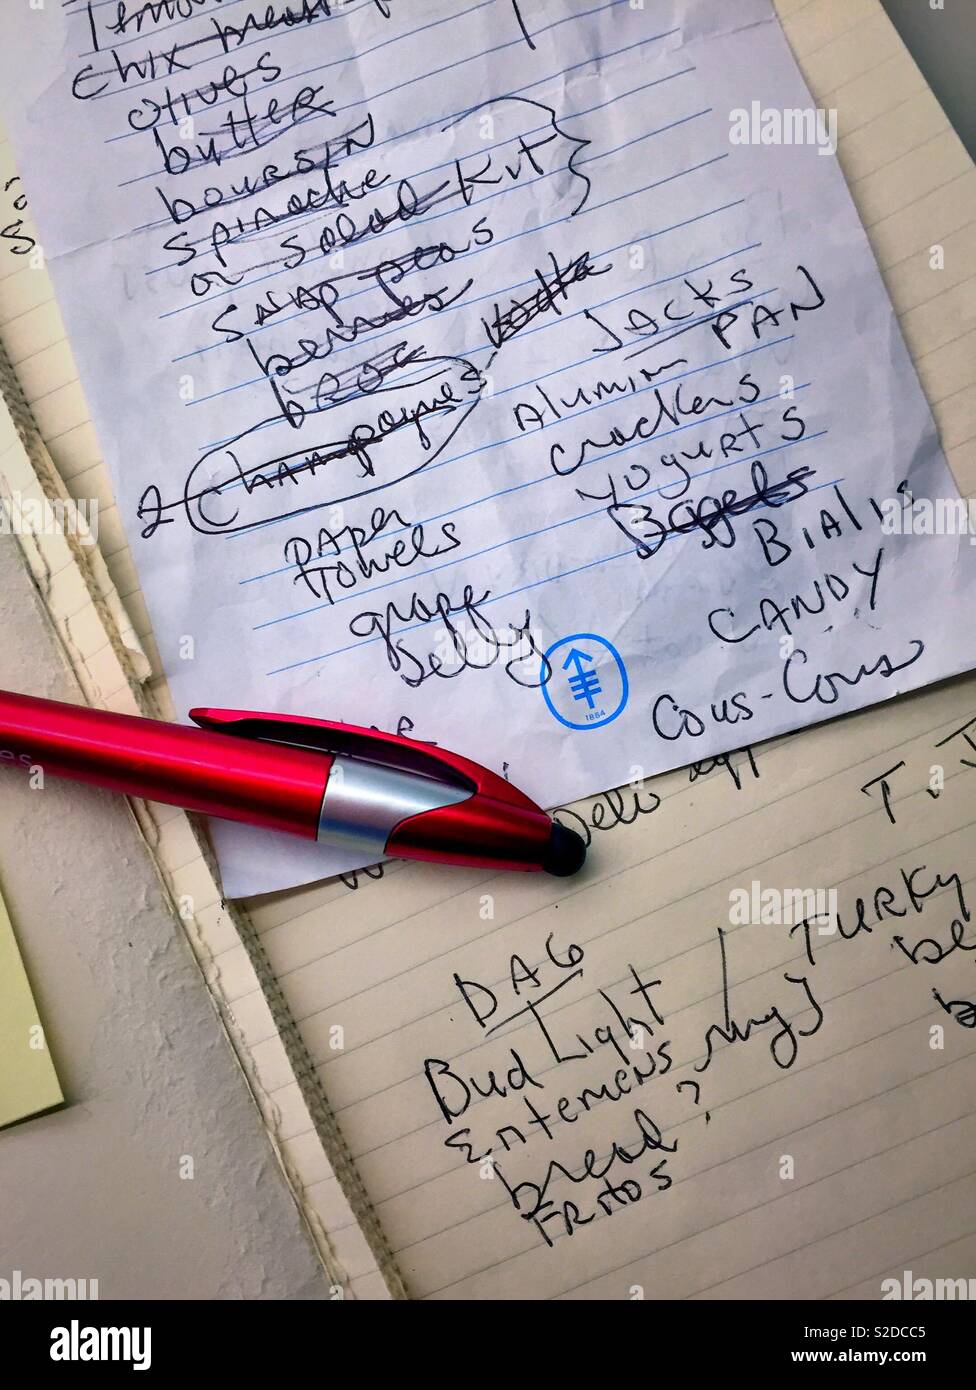 Chix
olives
butter
boursin
spinache
or salad kit
snap peas
berries
vodka
broc
2 Champagnes
paper
towels
grape
Jelly
Jacks
Alumin PAN
crackers
yogurts
Bagels
BiAlis
CANDY
Cous-Cous
1884
es
T.J
DAG
Bud Light / TURKy
Entemens
bread?
FRitos
alamy
Image ID: S2DCC5
www.alamy.com